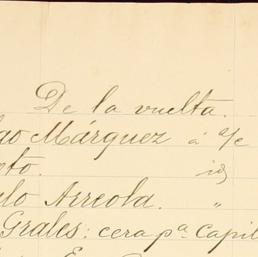 De la vuelta.
Márquez á a/c
id
Arreola. "
Grales: cera pª Capil